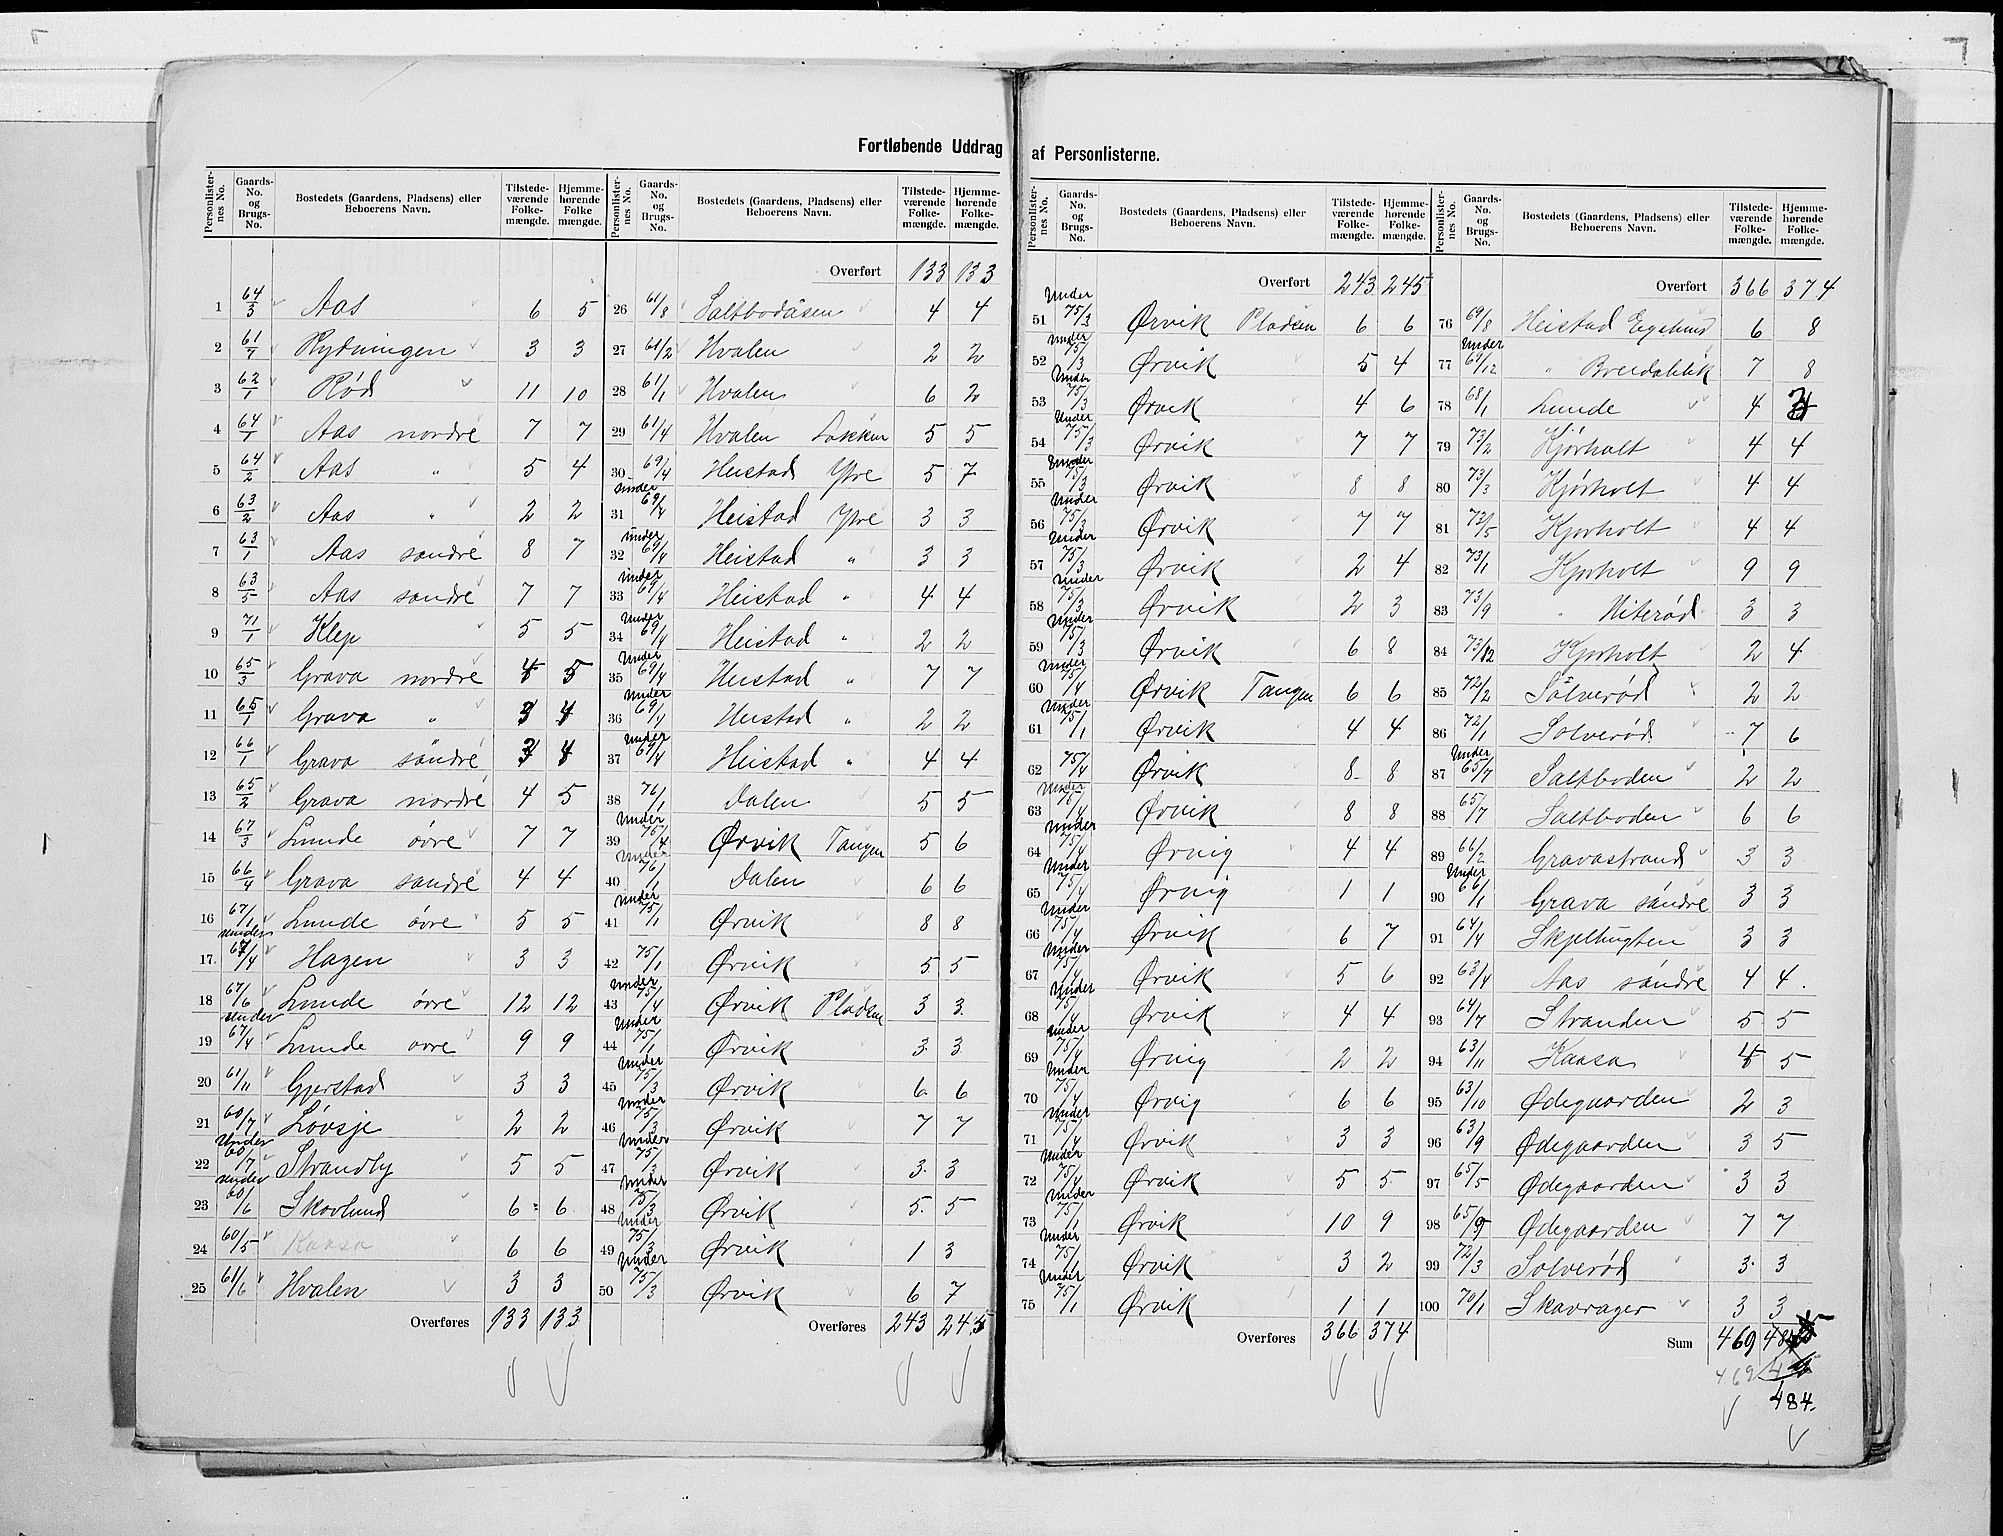 Fortløbende Uddrag af Personlisterne.
Personlisternes No. Gaards-No. og Brugs-No. Bostedets (Gaardens, Pladsens) eller Beboerens Navn. Tilstedeværende Folkemængde. Hjemmehørende Folkemængde.
1 64/3 Aas 6 5
2 61/7 Rydningen 3 3
3 62/1 Rød 11 10
4 64/1 Aas nordre 7 7
5 64/2 Aas " 5 4
6 63/2 Aas " 2 2
7 63/1 Aas søndre 8 7
8 63/5 Aas søndre 7 7
9 71/1 Klep 5 5
10 65/3 Grava nordre 5
11 65/1 Grava " 3 4
12 66/1 Grava søndre 3 4
13 65/2 Grava nordre 4 5
14 67/3 Lunde øvre 7 7
15 66/4 Grava søndre 4 4
16 67/1 Lunde øvre 5 5
17 under 67/4 Hagen 3 3
18 67/6 Lunde øvre 12 12
19 under 67/4 Lunde øvre 9 9
20 61/11 Gjerstad 3 3
21 60/7 Løvsje 2 2
22 Under 60/7 Strandby 5 5
23 under 60/6 Skovlund 6 6
24 60/5 Kaasa 6 6
25 61/6 Hvalen 3 3
Overføres 133 133
Personlisternes No. Gaards-No. og Brugs-No. Bostedets (Gaardens, Pladsens) eller Beboerens Navn. Tilstedeværende Folkemængde. Hjemmehørende Folkemængde.
Overført 133 133
26 61/8 Saltbodåsen 4 4
27 61/2 Hvalen 2 2
28 61/1 Hvalen 6 2
29 61/4 Hvalen Løkken 5 5
30 69/4 Heistad Yvre 5 7
31 under 69/4 Heistad Yvre 3 3
32 under 69/4 Heistad " 3 3
33 under 69/4 Heistad " 4 4
34 Under 69/4 Heistad " 2 2
35 Under 69/4 Heistad " 7 7
36 Under 69/4 Heistad " 2 2
37 Under 69/4 Heistad " 4 4
38 76/1 Dalen 5 5
39 Under 75/4 Ørvik Tangen 5 6
40 Under 76/1 Dalen 6 6
41 Under 75/1 Ørvik 8 8
42 75/1 Ørvik 5 5
43 Under 75/4 Ørvik Pladsen 3 3
44 Under 75/1 Ørvik 3 3
45 Under 75/3 Ørvik 6 6
46 Under 75/3 Ørvik 7 7
47 Under 75/3 Ørvik 3 3
48 Under 75/3 Ørvik 5 5
49 Under 75/3 Ørvik 1 3
50 Under 75/3 Ørvik 6 7
Overføres 243 245
Personlisternes No. Gaards-No. og Brugs-No. Bostedets (Gaardens, Pladsens) eller Beboerens Navn. Tilstedeværende Folkemængde. Hjemmehørende Folkemængde.
Overført 243 245
51 Under 75/3 Ørvik Pladsen 6 6
52 Under 75/3 Ørvik 5 4
53 Under 75/3 Ørvik 4 6
54 Under 75/3 Ørvik 7 7
55 Under 75/3 Ørvik 8 8
56 Under 75/3 Ørvik 7 7
57 Under 75/3 Ørvik 2 4
58 Under 75/3 Ørvik 2 3
59 Under 75/3 Ørvik 6 8
60 Under 75/4 Ørvik Tangen 6 6
61 Under 75/1 Ørvik 4 4
62 75/4 Ørvik 8 8
63 Under 75/4 Ørvik 8 8
64 Under 75/4 Ørvig 4 4
65 Under 75/4 Ørvig 1 1
66 Under 75/4 Ørvik 6 7
67 Under 75/4 Ørvik 5 6
68 Under 75/4 Ørvik 4 4
69 Under 75/4 Ørvig 2 2
70 Under 75/4 Ørvig 6 6
71 Under 75/4 Ørvik 3 3
72 Under 75/4 Ørvik 5 5
73 Under 75/1 Ørvik 10 9
74 Under 75/1 Ørvik 3 2
75 Under 75/1 Ørvik 1 1
Overføres 366 374
Personlisternes No. Gaards-No. og Brugs-No. Bostedets (Gaardens, Pladsens) eller Beboerens Navn. Tilstedeværende Folkemængde. Hjemmehørende Folkemængde.
Overført 366 374
76 69/8 Heistad 6 8
77 Under 69/12 " 7 8
78 68/1 Lunde 4
79 73/2 Kjørholt 4 4
80 73/3 Kjørholt 4 4
81 72/5 Kjørholt 4 4
82 73/1 Kjørholt 9 9
83 73/9 " Niterød 3 3
84 73/12 Kjørholt 2 4
85 72/2 Solverød 2 2
86 72/1 Solverød 7 6
87 Under 65/7 Saltboden 2 2
88 65/7 Saltboden 6 6
89 66/2 Gravastrand 3 3
90 Under 66/1 Grava søndre 3 3
91 64/4 Skjelbugten 3 3
92 63/4 Aas søndre 4 4
93 64/7 Stranden 5 5
94 63/11 Kaasa 5
95 63/10 Ødegaarden 2 3
96 63/9 Ødegaarden 3 5
97 65/5 Ødegaarden 3 3
98 65/9 Ødegaarden 7 7
99 72/3 Solverød 3 3
100 70/1 Skavrager 3 3
Sum 469
469
484.